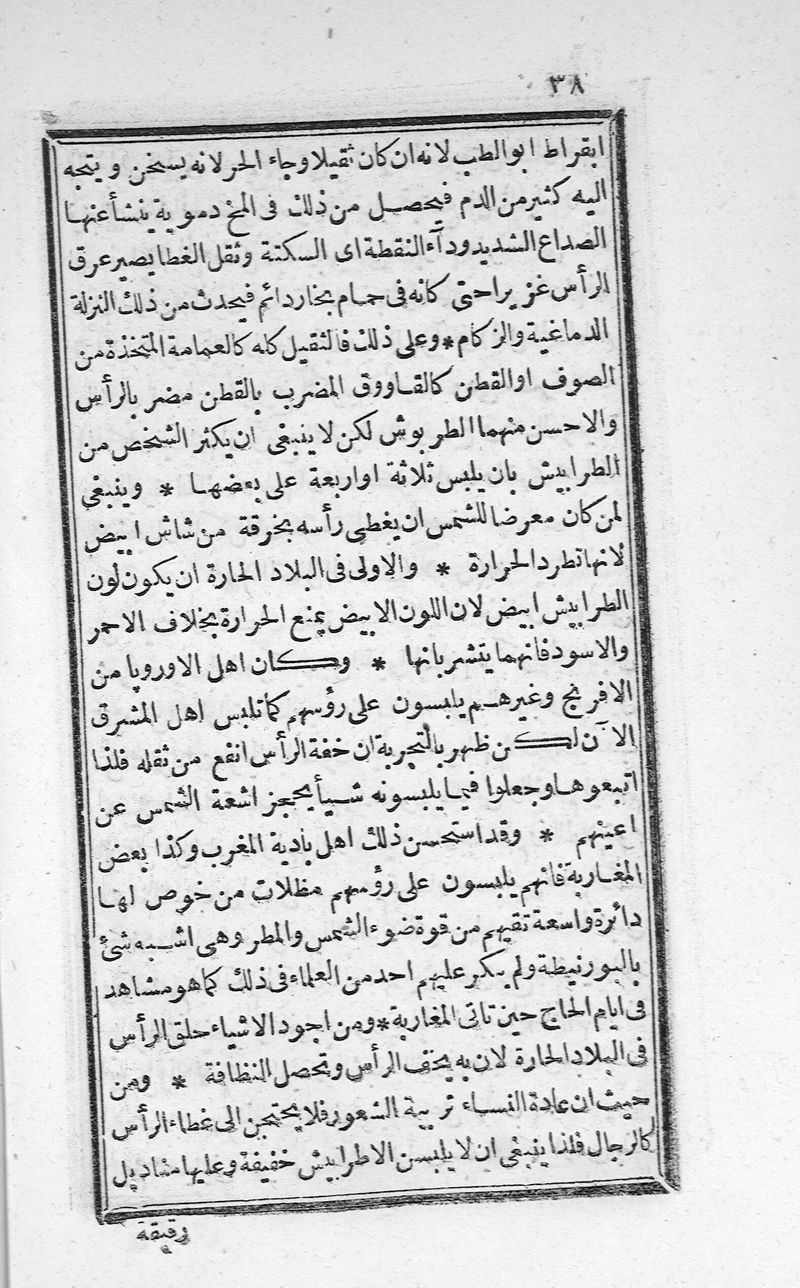 ٣٨
ابقراط ابو الطب لانه ان كان ثقيلا وجاء الحر لانه يسخن ويتجه
اليه كثير من الدم فيحصل من ذلك فى المخ دموية ينشأ عنها
الصداع الشديد ودآء النقطة اى السكتة وثقل الغطا يصير عرق
الرأس غزيرا حتى كانه فى حمام بخار دائم فيحدث من ذلك النزلة
الدماغية والزكام * وعلى ذلك فالثقيل كله كالعمامة المتخذة من
الصوف او القطن كالقاووق المضرب بالقطن مضر بالرأس
والاحسن منهما الطربوش لكن لا ينبغى ان يكثر الشخص من
الطرابيش بان يلبس ثلاثة او اربعة على بعضها * وينبغى
لمن كان معرضا للشمس ان يغطى رأسه بخرقة من شاش ابيض
لانها تطرد الحرارة * والاولى فى البلاد الحارة ان يكون لون
الطرابيش ابيض لان اللون الابيض يمنع الحرارة بخلاف الاحمر
والاسود فانهما يتشربانها * وكان اهل الاوروپا من
الافرنج وغيرهم يلبسون على رؤسهم كما تلبس اهل المشرق
الآن لكن ظهر بالتجربة ان خفة الرأس انفع من ثقله فلذا
اتبعوها وجعلوا فيما يلبسونه شيأ يحجز اشعة الشمس عن
اعينهم * وقد استحسن ذلك اهل بادية المغرب وكذا بعض
المغاربة فانهم يلبسون على رؤسهم مظلات من خوص لها
دائرة واسعة تقيهم من قوة ضوء الشمس والمطر وهى اشبه شئ
بالبورنيطة ولم ينكر عليهم احد من العلماء فى ذلك كما هو مشاهد
فى ايام الحاج حين تاتى المغاربة * ومن اجود الاشياء حلق الرأس
فى البلاد الحارة لان به يخف الرأس وتحصل النظافة * ومن
حيث ان عادة النساء تربية الشعور فلا يحتجن الى غطاء الرأس
كالرجال فلذا ينبغى ان لا يلبسن الا طرابيش خفيفة وعليها مناديل
رقيقة